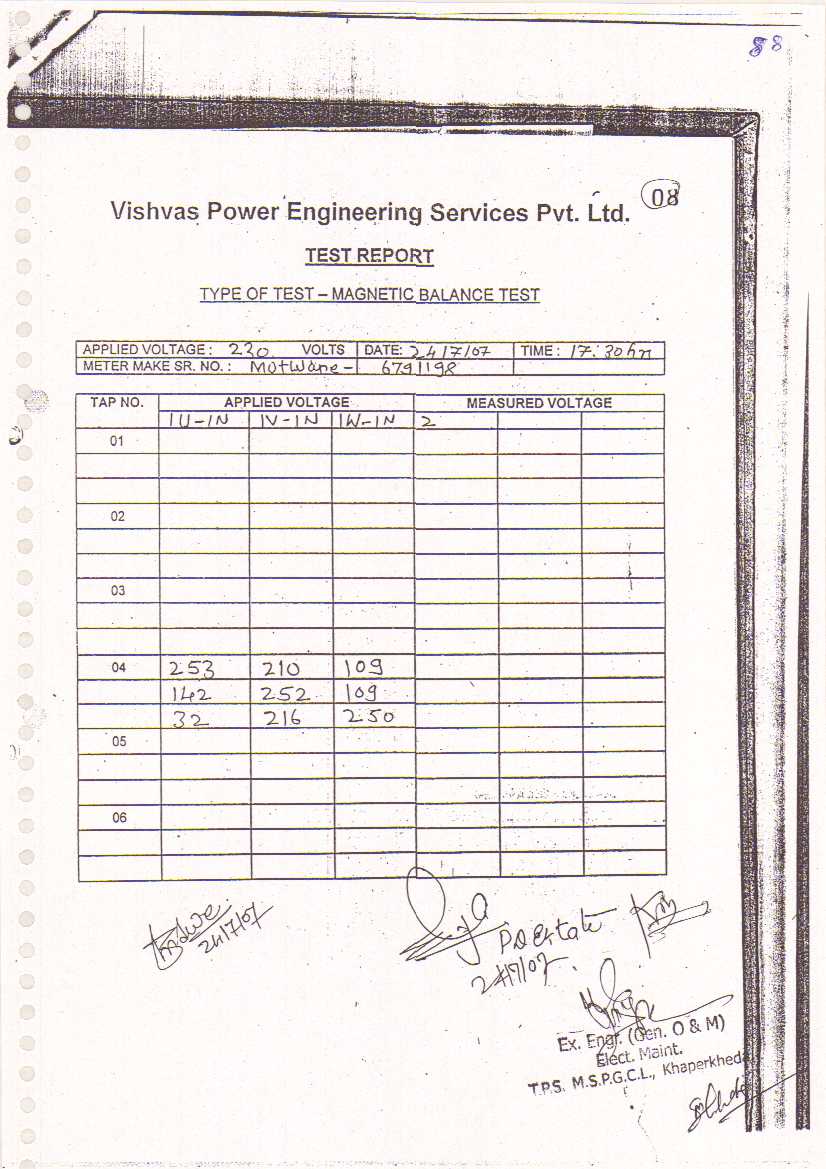 88
08
Vishvas Power Engineering Services Pvt. Ltd.
TEST REPORT
TYPE OF TEST – MAGNETIC BALANCE TEST
APPLIED VOLTAGE: 230 VOLTS DATE: 24/7/07 TIME: 17:30hr
METER MAKE SR. NO.: Motwane - 6791198
TAP NO. APPLIED VOLTAGE MEASURED VOLTAGE
1U-1N 1V-1N 1W-1N 2
01
02
03
04 253 210 109
142 252 109
32 216 250
05
06
24/7/07
24/7/07
Ex. Engr. (Gen. O & M)
Elect. Maint.
T.P.S. M.S.P.G.C.L., Khaperkheda